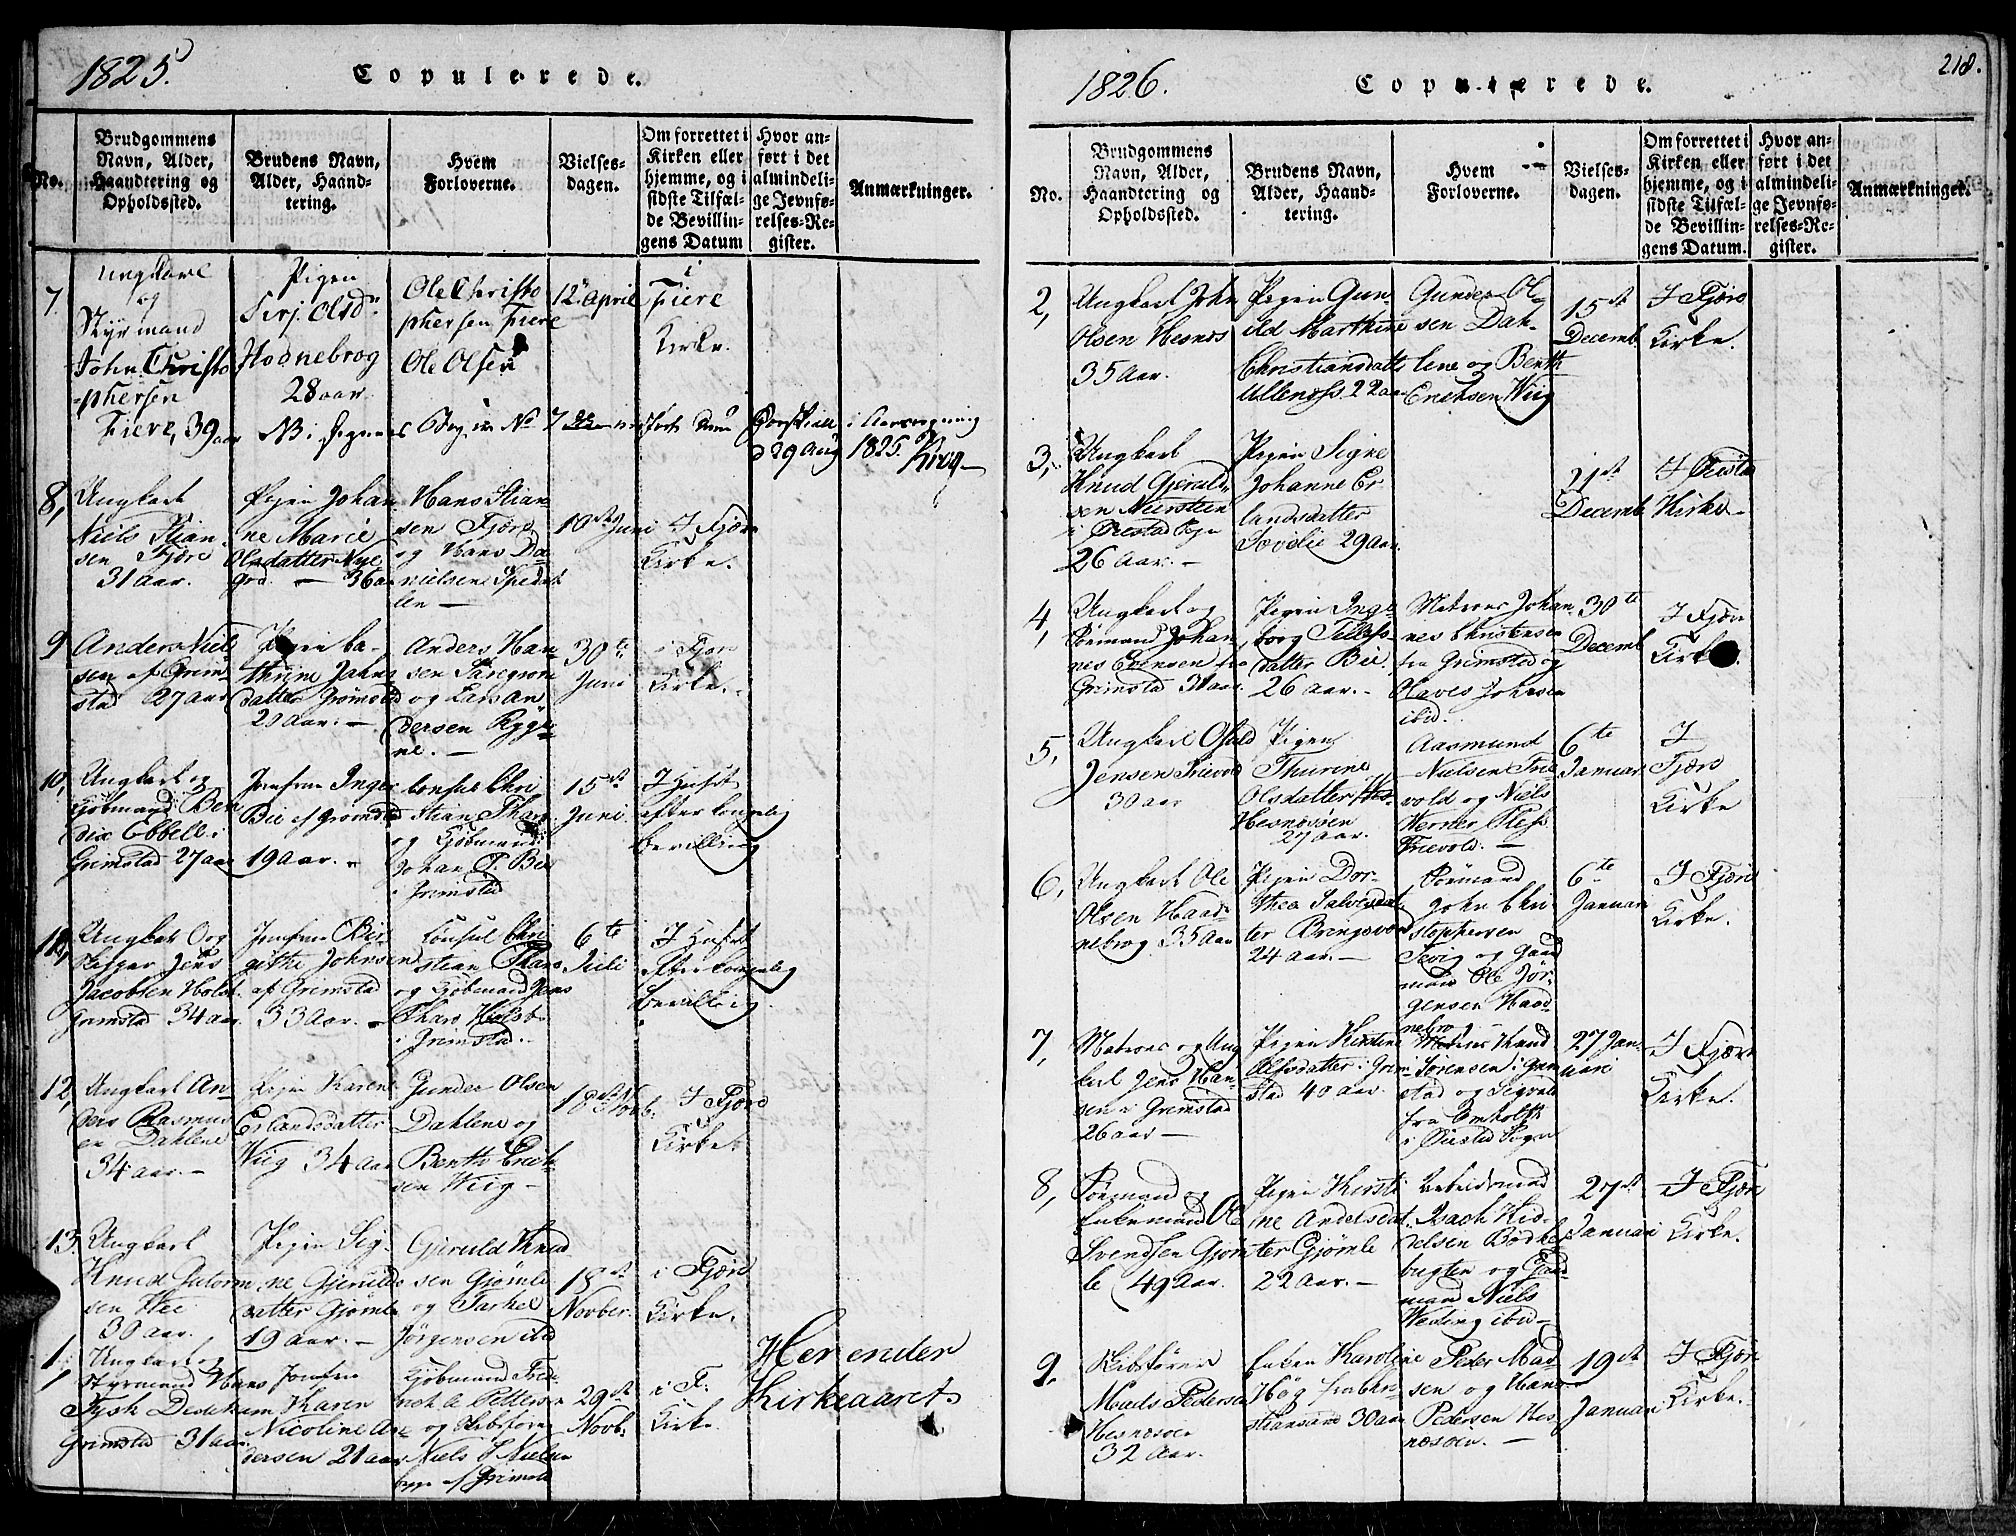 1825.
Copulerede.
No.
Brudgommens
Navn, Alder,
Haandtering og
Opholdssted.
Brudens Navn,
Alder, Haand-
tering.
Hvem
Forloverne.
Vielses-
dagen.
Om forrettet i
Kirken eller
hjemme, og i
sidste Tilfæl-
de Bevillin-
gens Datum
Hvor an-
ført i det
almindeli-
ge Jevnfø-
relses-Re-
gister.
Anmærkninger.
7.
Ungkarl
og
Styrmand
John Christo
-phersen
Fiere, 39 aar
Pigen
Olsdr
Hodnebrog
28 aar
Ole Christo
phersen Fiere
Ole Olsen
12 April
i
Fiere
Kirke.
d 29 Aug
1825. Krog
8,
Ungkarl
Niels Stian-
sen Fjære
31 Aar.
Pigen Johan-
ne Marie
Olsdatter Nye
grd. — 36 aar
Hans Stian-
sen Fjære
og Hans Da-
nielsen Speda-
len —
10de Juni
I Fjære
Kirke.
9
Anders Niel
sen af Grim-
stad 27 aar
Pigen Ca-
thrine Jahns
datter Grømsted
20 Aar. —
Anders Han-
sen
og Lars An
dersen Rygge-
ne. —
30te
Juni
i Fjære
Kirke.
10,
Ungkarl og
Kjøbmand Ben
dix Ebbell i
Grimstad 27 aar
Jomfrue Inger
Bie af Grømsted
19 Aar. —
Consul Chri
stian Thams
og Kjøbmand
Johan P. Bie
i Grimstad
15de
Juni
I Huset
efter kongelig
bevilling
11,
Ungkarl og
Jens
Jacobsen Holst
Grimstad 34 aar
Jomfrue Bir-
githe Johnsen
af Grimstad
33 Aar. —
Consul Chri-
stian Thams
og Kjøbmand Jens
Thams Holst
i Grimstad.
6te
Juli
I Huset
efter kongelig
bevilling
12,
Ungkarl An-
ders Rasmus
en Dahlene
34 aar. —
Pigen Karen
Erlandsdatter
Viig 34 aar
Gunder Olsen
Dahlene og
Benth Erich-
sen Wiig —
18de Novb.
I Fjære
Kirke.
13.
Ungkarl
Knud Gutorm
sen Hei
30 aar.
Pigen Sig-
ne Gjeruldo
datter Gjømle
19 aar. —
Gjeruld Knud
sen Gjømle
og Tarkel
Jørgensen ibid
18de
Novber.
i Fjære
Kirke.
1.
Ungkarl og
Styrmand Hans
Tysk Dedekam
Grimstad 31 aar
Jomfru
Karen
Nicoline An-
dersen 21 aar
Kjøbmand Fre-
rich C Pettersen
og Skibsføre
Niels S Nielsen
begge af Grimsted
29de
Novb.
i F:
Kirke
Her ender
Kirkeaaret
1826.
Copulerede.
218.
No.
Brudgommens
Navn, Alder,
Haandtering og
Opholdssted.
Brudens Navn,
Alder, Haand-
tering.
Hvem
Forloverne.
Vielses-
dagen.
Om forrettet i
Kirken eller
hjemme, og i
sidste Tilfæl-
de Bevillin-
gens Datum.
Hvor an-
ført i det
almindeli-
ge Jevnfø-
relses-Re-
gister.
Anmærkninger.
2,
Ungkarl John
Olsen Hesnes
35 Aar.
Pigen Gun-
ild Marthine
Christiansdatt
Ullenæss 22 aar
Gunder Ol-
sen Dah-
lene og Benth
Erichsen Wiig
15de
Decemb.
I Fjære
Kirke.
3,
Ungkarl
Knud Gjeruld-
sen Neersteen
i Øiestad Sogn
26 Aar. —
Pigen Signe
Johanne Er-
landsdatter
Søvelie 29 aar
21de
Decemb
I Øiestad
Kirke
4,
Ungkarl og
Sømand Johan
nes Evensen fra
Grimstad 31 aar
Pigen Inge-
borg Tellefs-
datter Bie.
26 aar. —
Matros Johan
nes Christensen
fra Grimsted og
Olaves Johnsen
ibid.
30te
Decemb
I Fjære
Kirke.
5,
Ungkarl Osuld
Jensen Frievold
30 aar
Pigen
Thurine
Olsdatter
Hesnessøen
27 aar.
Aasmund
Nielsen Frie-
vold og Niels
Werner Fless
Frievold. —
6te
Januar
I
Fjære
Kirke
6,
Ungkarl Ole
Olsen Haad-
nebrog 35 Aar
Pigen Dor-
thea Salvesdat
ter Bringsvær
24 aar. —
Sømand
John Chri-
stophersen
Fevig og Gaard
mand Ole Jør-
gensen Haad-
nebrog —
6te
Januari
I Fjære
Kirke.
7,
Matros og Ung
karl Jens Han-
sen i Grimstad
26 aar —
Pigen Kirstine
Olsdatter i Grim
stad 40 aar.
Matros Knud
Sørensen i Grim
stad og
fra Omholt
i Øiestad Sogn
27 Jan-
uari
I Fjære
Kirke.
8,
Sømand og
Enkemand Ole
Svendsen Gjøm
le 49 Aar.
Pigen Kirsti
ne Andersdat
ter Gjømle
22 Aar. —
Arbeidsmand
Isach Kid-
delsen Bødker
bugten og Gaard
mand Niels
Weding ibid —
27de
Januari
I Fjære
Kirke.
9.
Skibsfører
Mads Pedersen
Hesnesøen
32 Aar.
Enken Karoline
Høg fra Chri-
stiansand 30 aar
Peder Mad
sen og Hans
Pedersen Hes-
nesøen. —
19de
Januari
I Fjære
Kirke.